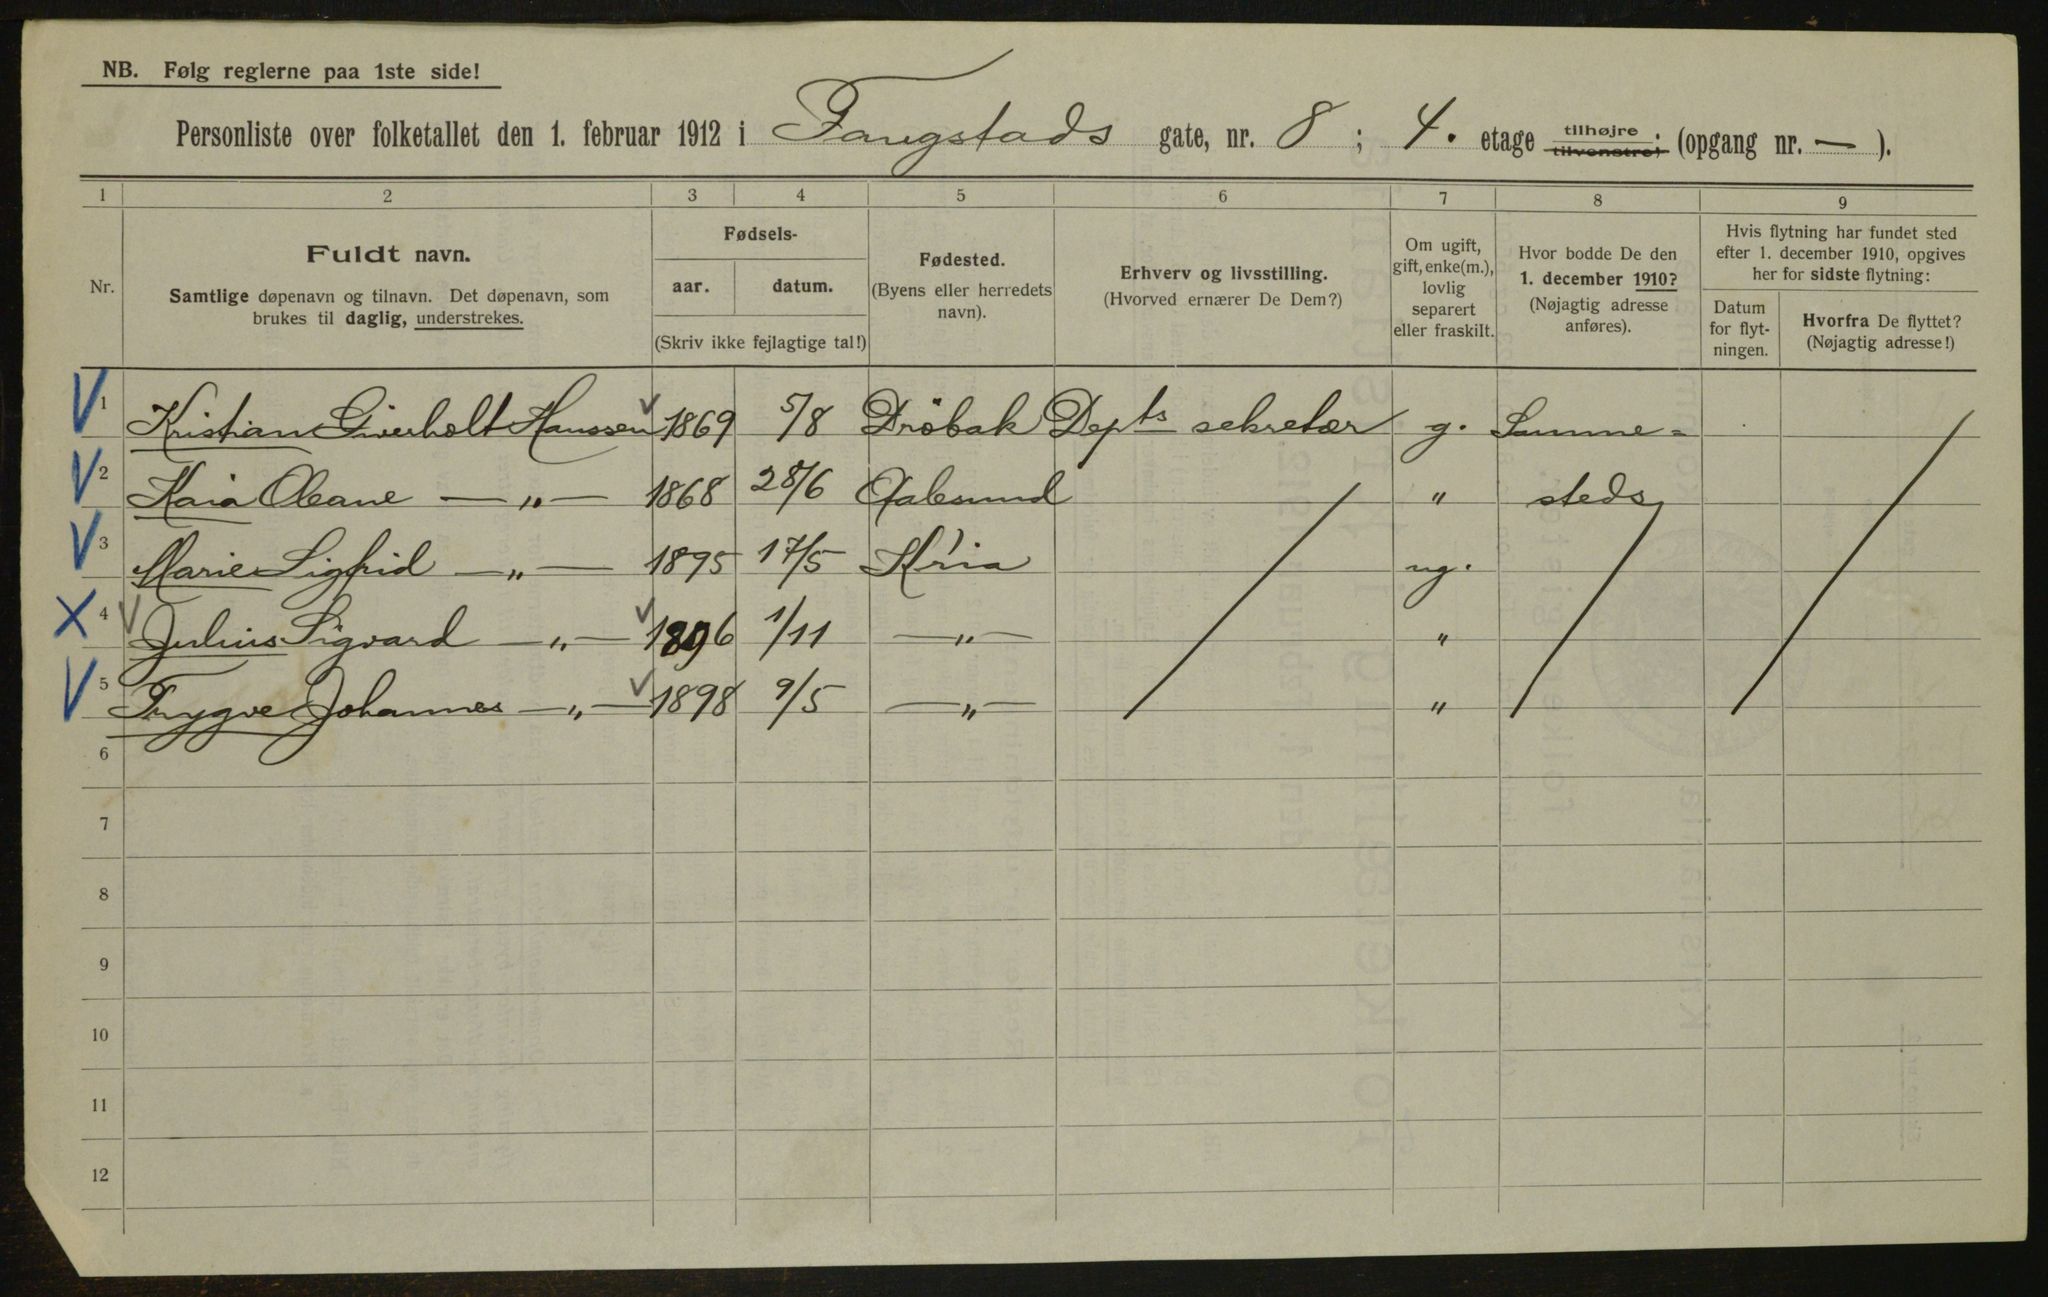 NB. Følg reglerne paa 1ste side!
Personliste over folketallet den 1. februar 1912 i Fougstads gate, nr. 8 ; 4. etage tilhøjre tilvenstre; (opgang nr. — ).
1 2 3 4 5 6 7 8 9
Nr.
Fuldt navn.
Samtlige døpenavn og tilnavn. Det døpenavn, som
brukes til daglig, understrekes.
Fødsels-
aar. datum.
(Skriv ikke fejlagtige tal!)
Fødested.
(Byens eller herredets
navn).
Erhverv og livsstilling.
(Hvorved ernærer De Dem?)
Om ugift,
gift, enke(m.),
lovlig
separert
eller fraskilt.
Hvor bodde De den
1. december 1910?
(Nøjagtig adresse
anføres).
Hvis flytning har fundet sted
efter 1. december 1910, opgives
her for sidste flytning:
Datum
for flyt-
ningen.
Hvorfra De flyttet?
(Nøjagtig adresse!)
1 Kristian Giverholt Hanssen 1869 5/8 Drøbak Depts sekretær g. Samme=
2 Kaia Oleane — „ — 1868 28/6 Aalesund „ steds
3 Marie Sigfrid — „ — 1895 17/5 Kr'ia ug.
4 Julius Sigvard — „ — 1896 1/11 — „ — „
5 Trygve Johannes — „ — 1898 9/5 — „ — „
6
7
8
9
10
11
12